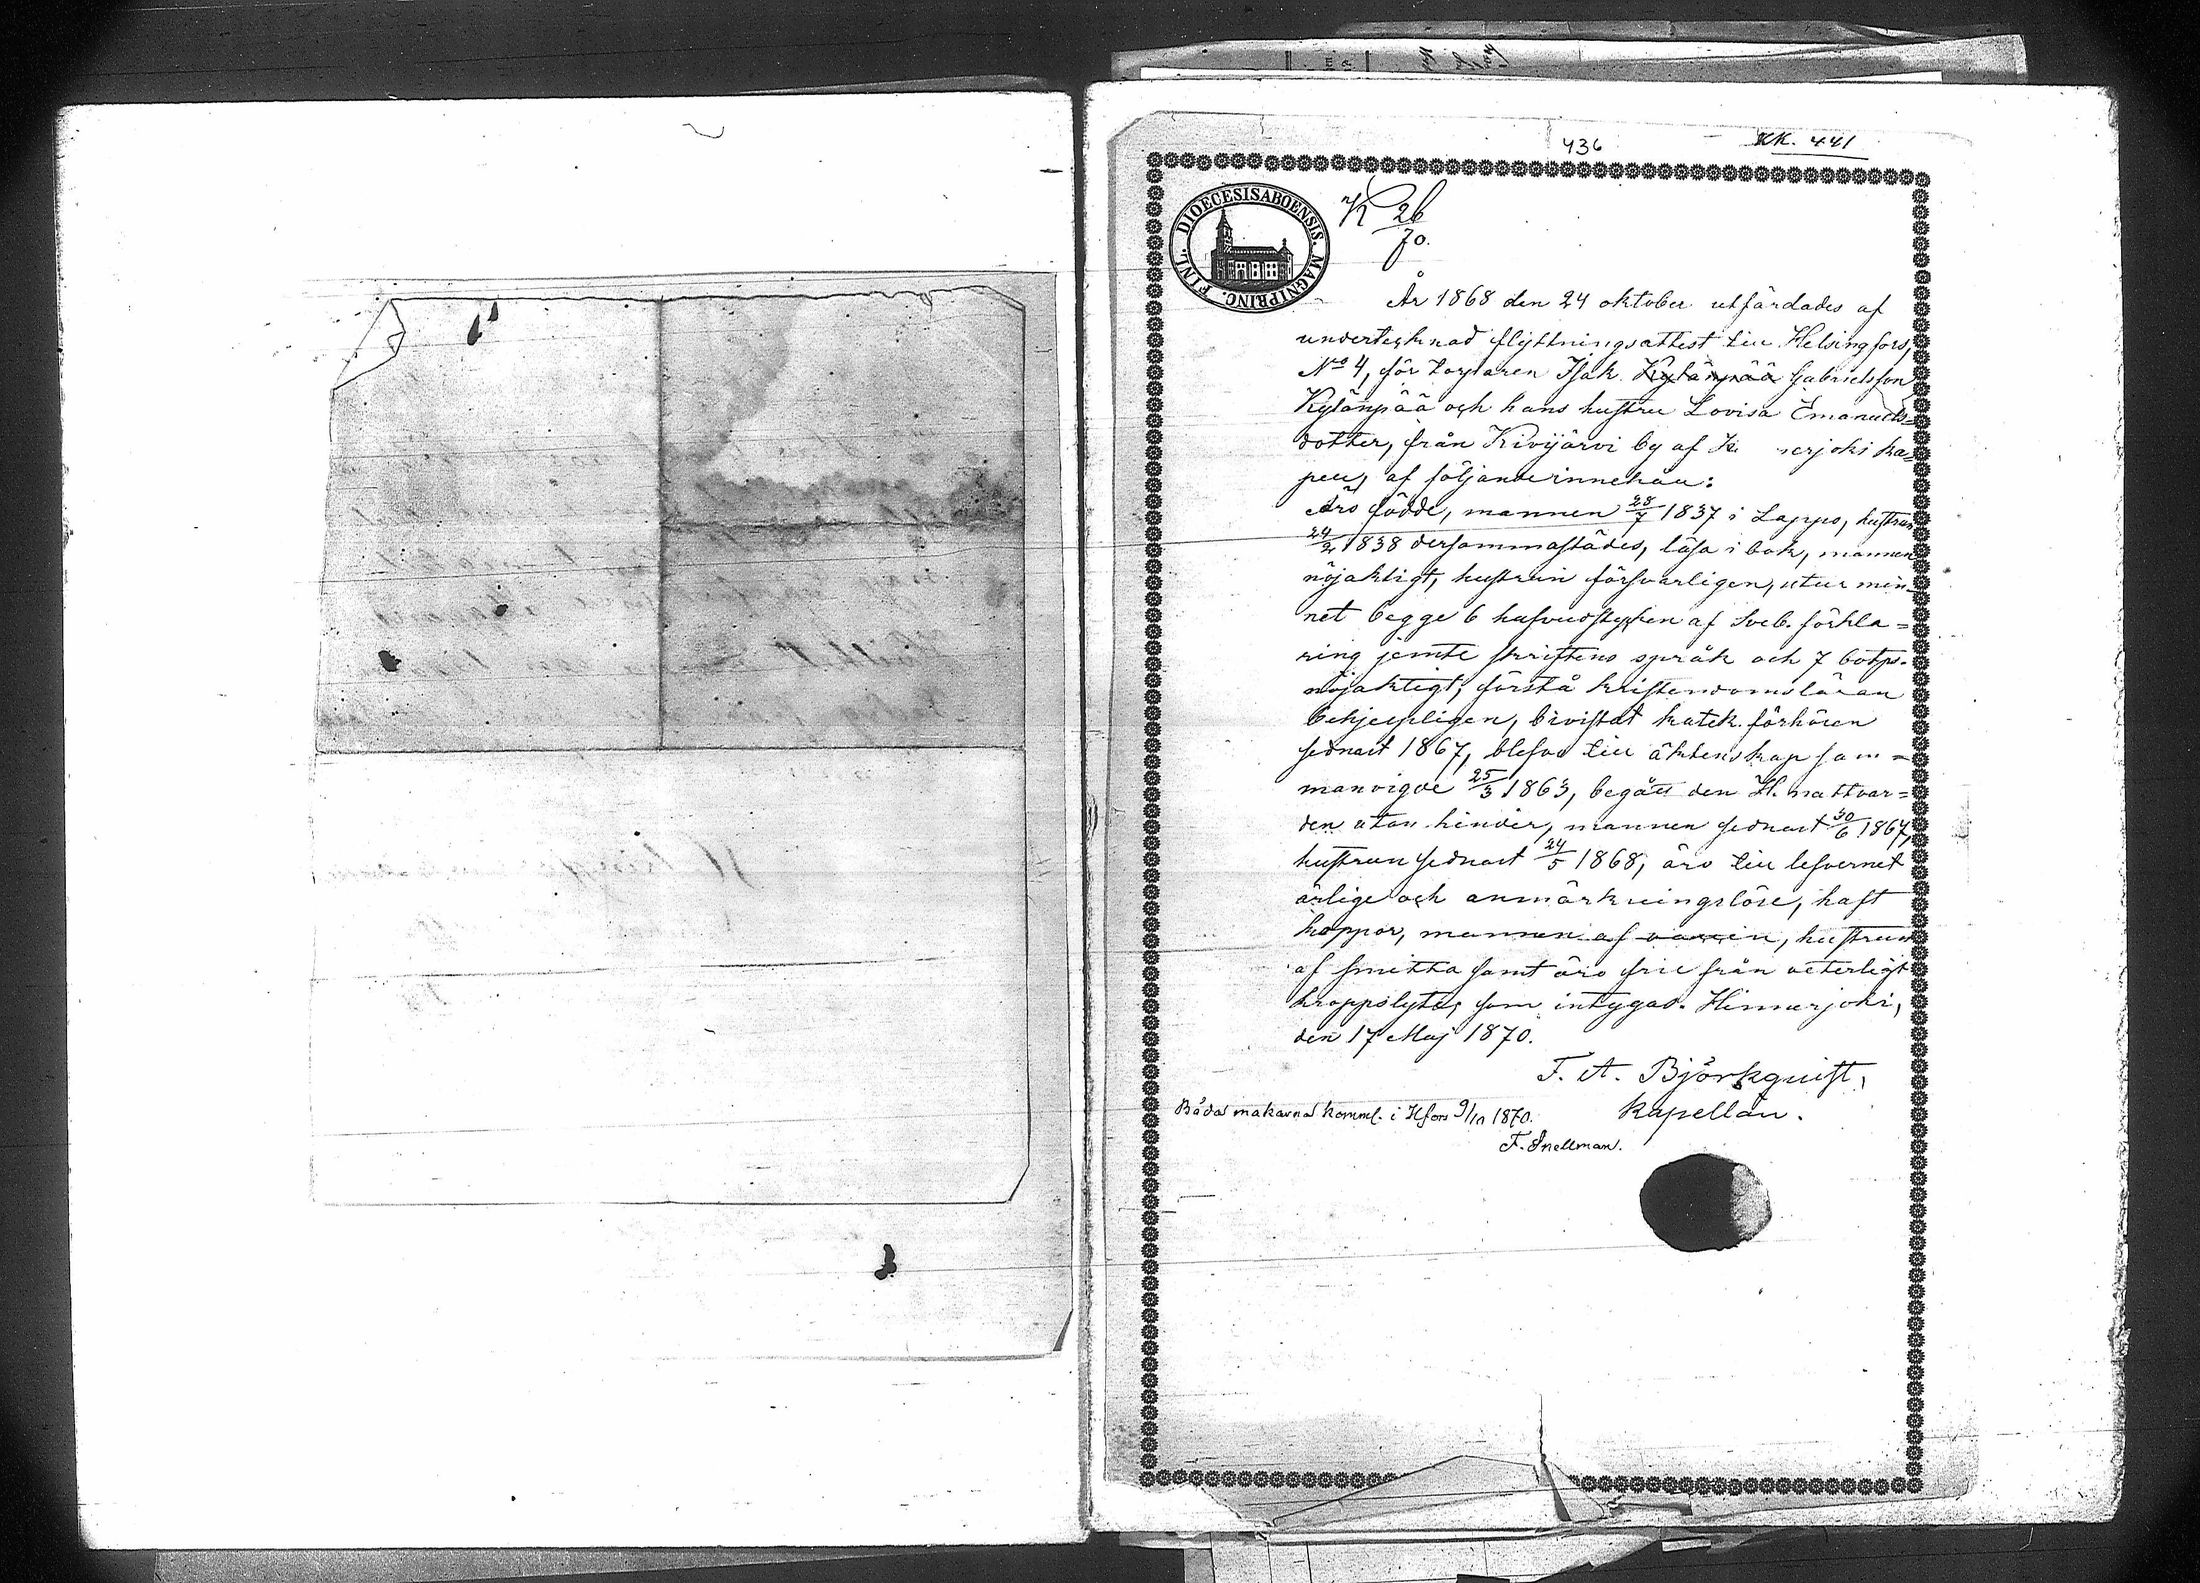 436
KK. 441
DIOECESIS ABOENSIS. MAGNI PRINC. FINL.
K 26/70.
År 1868 den 24 oktober utfärdades af
undertecknad flyttningsattest till Helsingfors,
No 4, för torparen Isak Kylänpää Gabrielsson
Kylänpää och hans hustru Lovisa Emanuels-
dotter, från Kivijärvi by af Hi merjoki ka=
pell, af följande innehåll:
Äro födde, mannen 28/7 1837 i Lappo, hustrun
24/2 1838 dersammastädes, läsa i bok, mannen
nöjaktigt, hustrun försvarligen, utur min-
net begge 6 hufvudstycken af Sveb. förkla=
ring jemte skriftens språk och 7 botps.
nöjaktigt, förstå kristendomsläran
behjelpligen, bivistat katek. förhören
sednast 1867, blefvo till äktenskap sam=
manvigde 25/3 1863, begått den H. nattvar=
den utan hinder, mannen sednast 30/6 1867,
hustrun sednast 24/5 1868, äro till lefvernet
ärlige och anmärkningslöse, haft
koppor, mannen af vaccin, hustrun
af smitta samt äro frie från veterligt
kroppslyte, som intygas. Himerjoki,
den 17 Maj 1870.
F. A. Björkqvist,
Kapellan.
Båda makarna komml. i Hfors 9/10 1870.
F. Snellman.